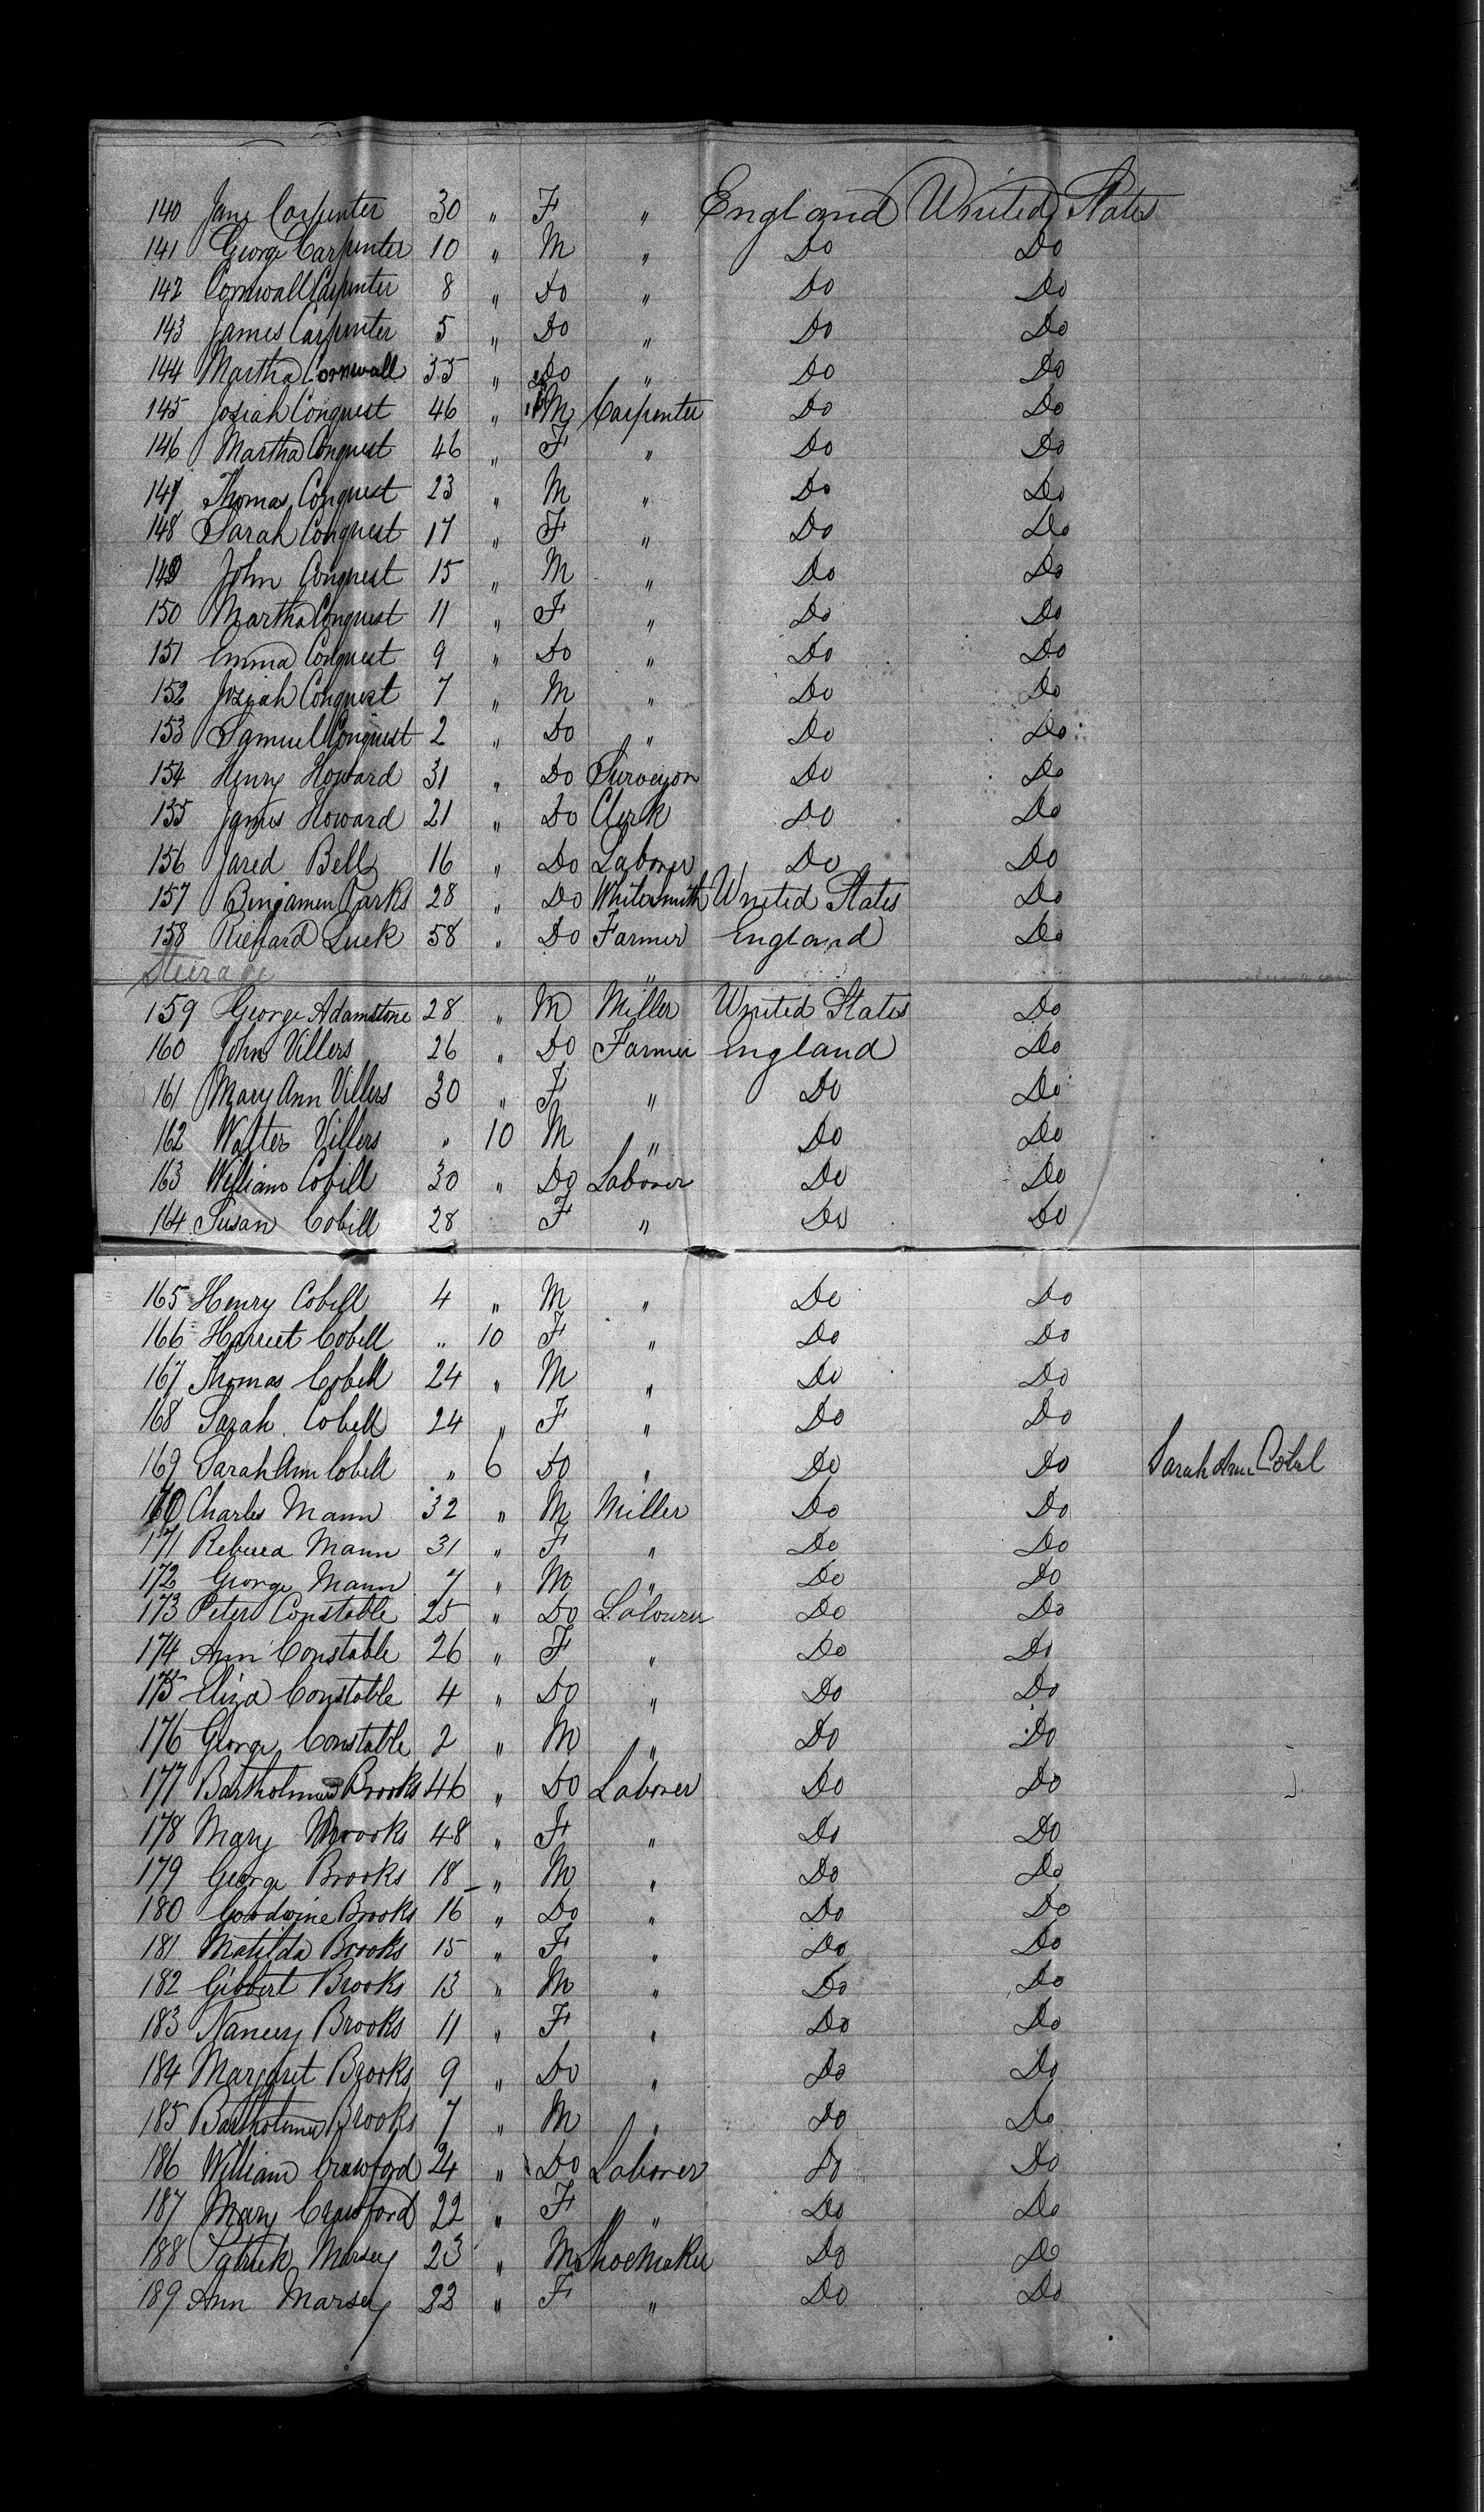 140 Jane Carpenter 30 " F " England United States
141 George Carpenter 10 " M " Do Do
142 Cornwall Carpenter 8 " Do " Do Do
143 James Carpenter 5 " Do " Do Do
144 Martha Cornwall 35 " Do " Do Do
145 Josiah Conquest 46 " M Carpenter Do Do
146 Martha Conquest 46 " F " Do Do
147 Thomas Conquest 23 " M " Do Do
148 Sarah Conquest 17 " F " Do Do
149 John Conquest 15 " M " Do Do
150 Martha Conquest 11 " F " Do Do
151 Emma Conquest 9 " Do " Do Do
152 Josiah Conquest 7 " M " Do Do
153 Samuel Conquest 2 " Do " Do Do
154 Henry Howard 31 " Do Surveyor Do Do
155 James Howard 21 " Do Clerk Do Do
156 Jared Bell 16 " Do Laborer Do Do
157 Benjamen Parks 28 " Do Whitesmith United States Do
158 Richard Luck 58 " Do Farmer England Do
Steerage "
159 George Adamstone 28 " M Miller United States Do
160 John Villers 26 " Do Farmer England Do
161 Mary Ann Villers 30 " F " Do Do
162 Walter Villers " 10 M " Do Do
163 William Cobill 30 " Do Laborer Do Do
164 Susan Cobill 28 F " Do Do
165 Henry Cobell 4 " M " Do Do
166 Harriet Cobell " 10 F " Do Do
167 Thomas Cobell 24 " M " Do Do
168 Sarah Cobell 24 " F " Do Do
169 Sarah Ann Cobell " 6 Do " Do Do Sarah Ann Cobel
170 Charles Mann 32 " M Miller Do Do
171 Rebecca Mann 31 " F " Do Do
172 George Mann 7 " M " Do Do
173 Peter Constable 25 " Do Labourer Do Do
174 Ann Constable 26 " F " Do Do
175 Eliza Constable 4 " Do " Do Do
176 George Constable 2 " M " Do Do
177 Bartholmew Brooks 46 " Do Laborer Do Do
178 Mary Brooks 48 " F " Do Do
179 George Brooks 18 " M " Do Do
180 Goodwine Brooks 16 " Do " Do Do
181 Matilda Brooks 15 " F " Do Do
182 Gibbert Brooks 13 " M " Do Do
183 Nancy Brooks 11 " F " Do Do
184 Margaret Brooks 9 " Do " Do Do
185 Bartholmew Brooks 7 " M " Do Do
186 William Crawford 24 " Do Laborer Do Do
187 Mary Crawford 22 " F " Do Do
188 Patrick Marsey 23 " M Shoemaker Do Do
189 Ann Marsey 22 " F " Do Do